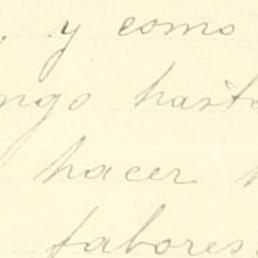 , y como
ngo hasta
hacer
fabores